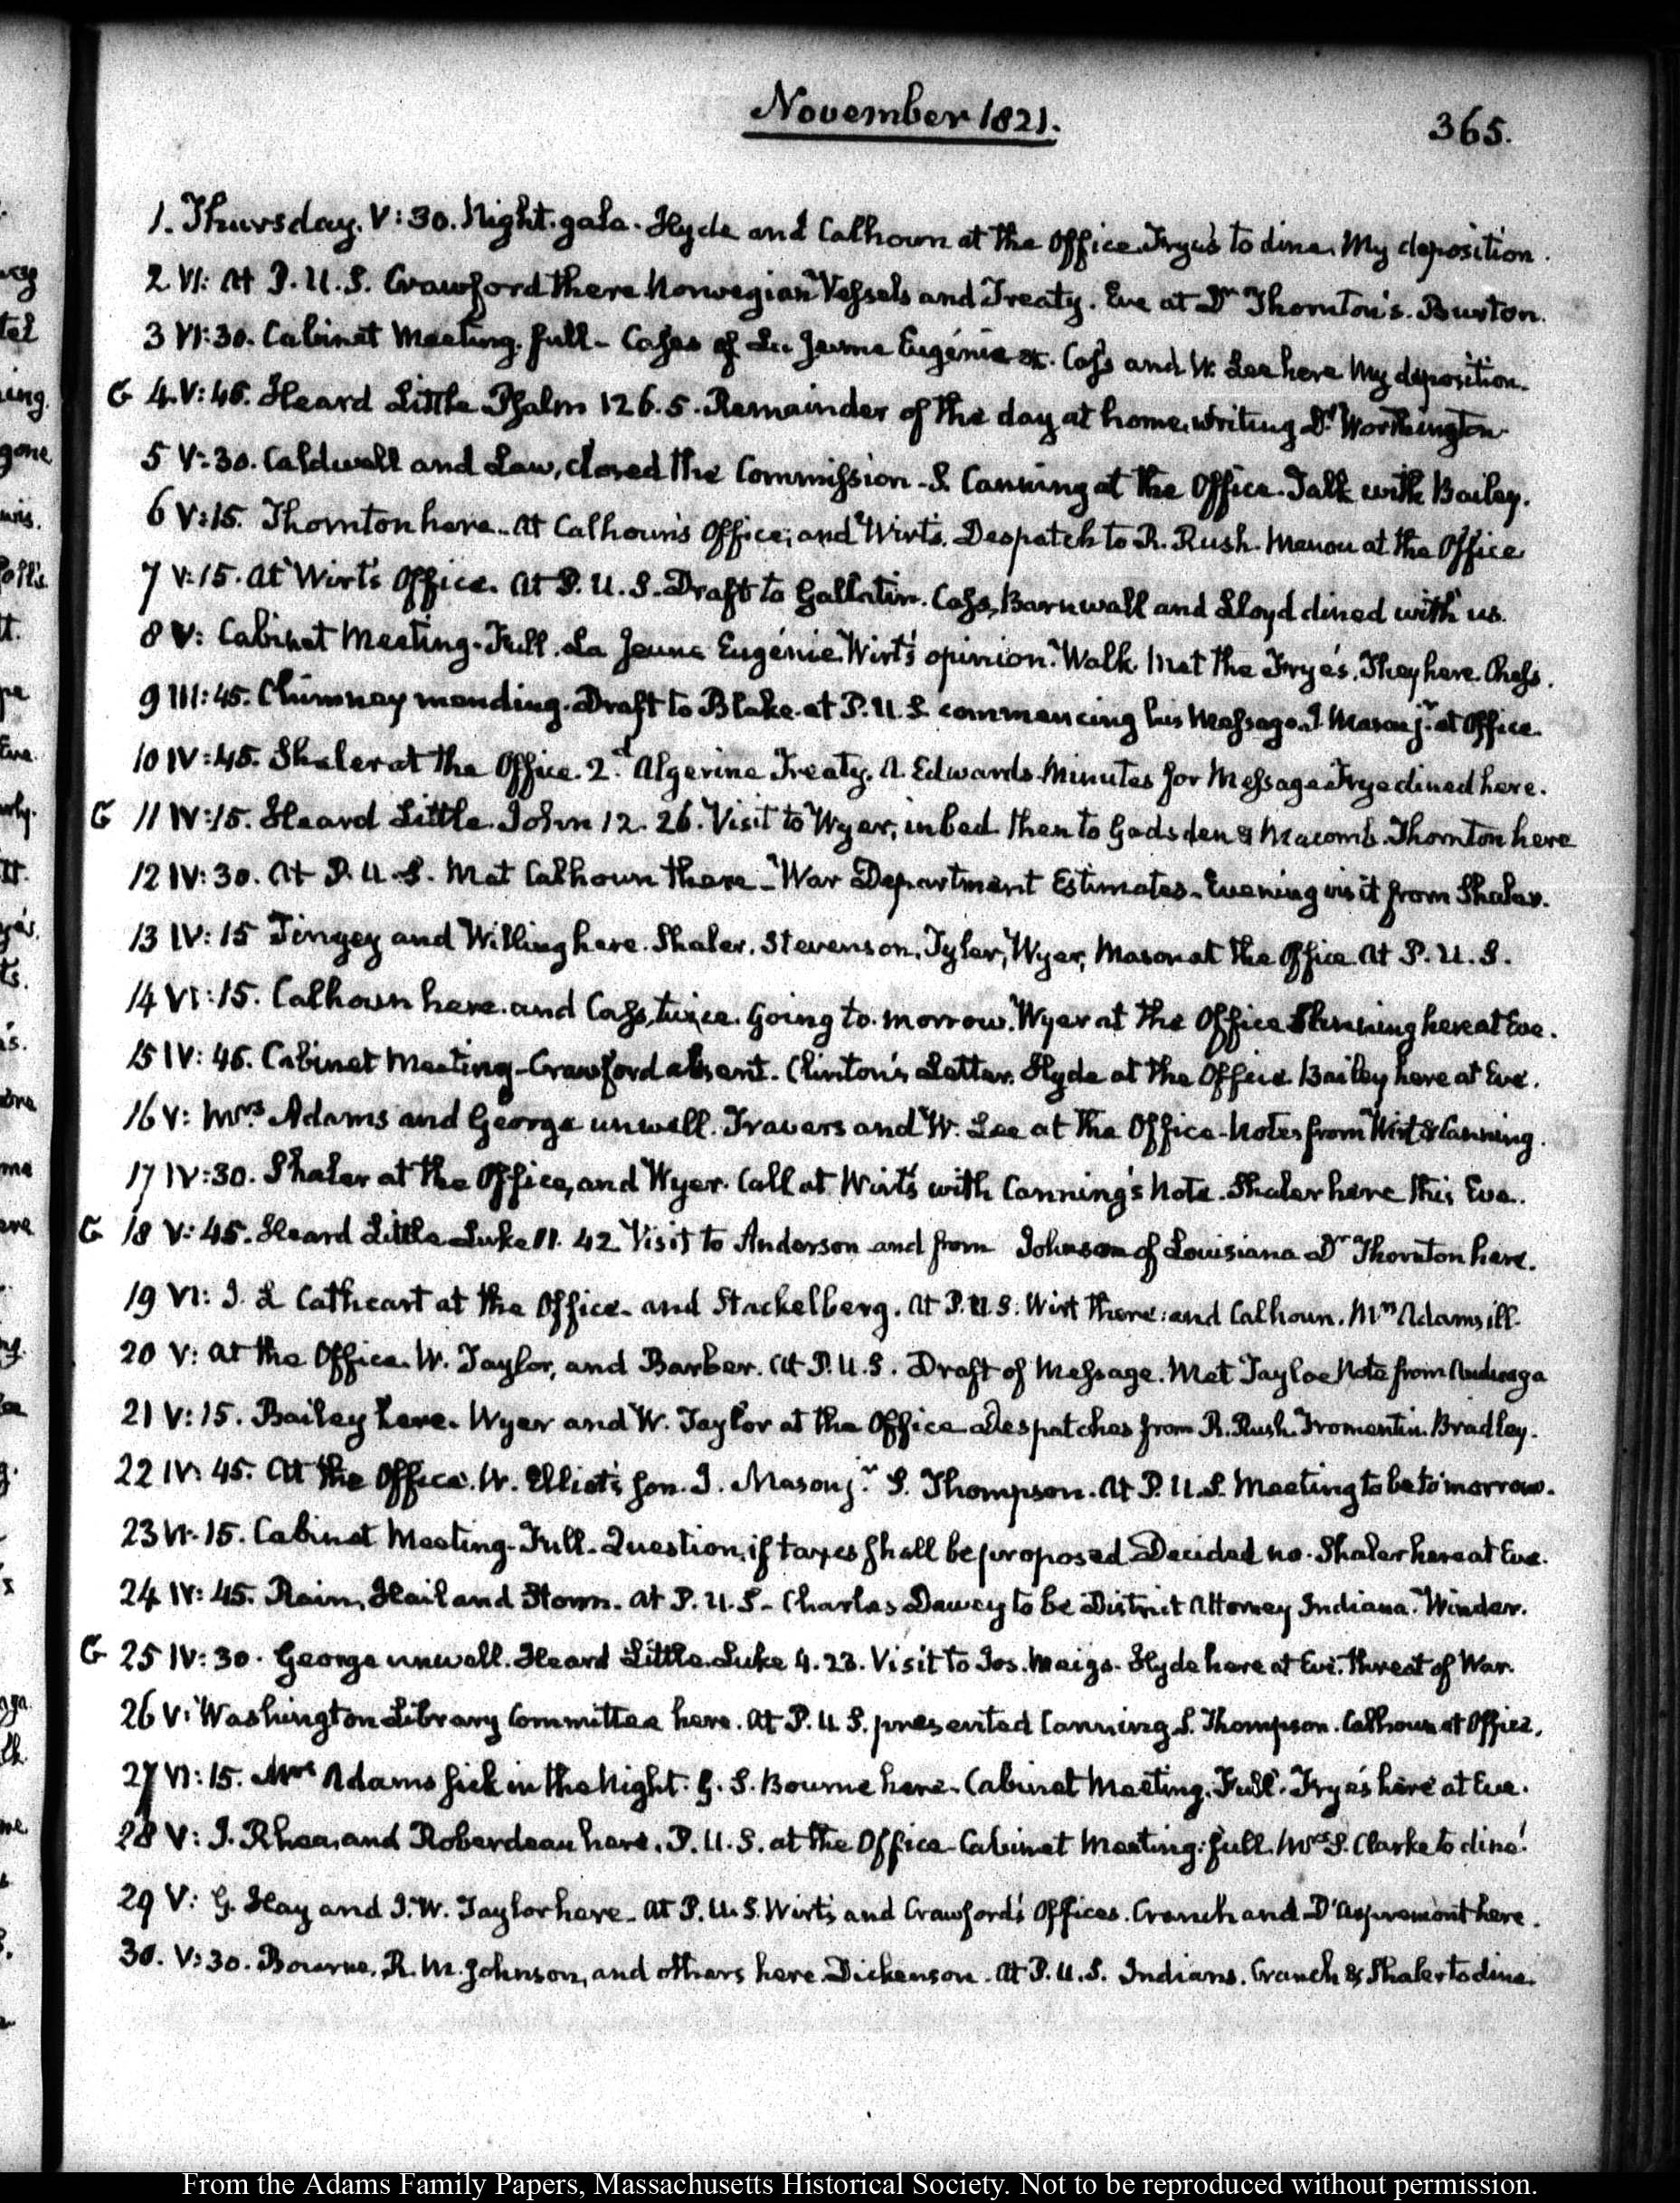 November 1821.
365.
1. Thursday. V:30. Night. gala. Hyde and Calhoun at the Office. Frye's to dine. My deposition.
2 VI: At P. U. S. Crawford there Norwegian Vessels and Treaty. Eve at Dr Thornton's. Burton.
3 VI:30. Cabinet Meeting. full- Cases of La Jeune Eugénie &c. Cass and W. Lee here My deposition.
G 4. V:45. Heard Little Psalm 126. 5. Remainder of the day at home, writing Dr Worthington
5 V:30. Caldwell and Law, closed the Commission- S. Canning at the Office. Talk with Bailey.
6 V:15. Thornton here. At Calhoun's Office; and Wirt's. Despatch to R. Rush. Menou at the Office
7 V:15. At Wirt's Office. At P. U. S. Draft to Gallatin. Cass, Barnwall and Lloyd dined with us.
8 V: Cabinet Meeting. Full. La Jeune Eugénie. Wirt's opinion. Walk. Met the Frye's. They here. Chess.
9 III:45. Chimney mending. Draft to Blake. at P. U. S. commencing his Message. J. Mason jr. at Office.
10 IV:45. Shaler at the Office. 2.d Algerine Treaty. A. Edwards. Minutes for Message Frye dined here.
G 11 IV:15. Heard Little. John 12. 26. Visit to Wyer, in bed. then to Gadsden & Macomb. Thornton here
12 IV:30. At P. U. S. Met Calhoun there- War Department Estimates. Evening visit from Shaler.
13 IV:15 Tingey and Willing here. Shaler. Stevenson, Tyler, Wyer, Mason at the Office. At P. U. S.
14 VI:15. Calhoun here. and Cass, twice. Going to-morrow. Wyer at the Office here at Eve.
15 IV:45. Cabinet Meeting- Crawford absent. Clinton's Letter. Hyde at the Office Bailey here at Eve.
16 V: Mrs. Adams and George unwell. Travers and W. Lee at the Office- Notes from Wirt & Canning.
17 IV:30. Shaler at the Office, and Wyer. Call at Wirt's with Canning's Note. Shaler here this Eve.
G 18 V:45. Heard Little Luke 11. 42 Visit to Anderson and from Johnson of Louisiana Dr Thornton here.
19 VI: J. L Cathcart at the Office- and Stackelberg. At P. U. S. Wirt there: and Calhoun. Mrs Adams ill.
20 V: at the Office. W. Taylor, and Barber. At P. U. S. Draft of Message. Met Tayloe Note from Anduaga
21 V:15. Bailey here. Wyer and W. Taylor at the Office Despatches from R. Rush. Fromentin. Bradley.
22 IV:45. At the Office. W. Elliot's son. J. Mason jr. S. Thompson. At P. U. S. Meeting to be to morrow.
23 VI:15. Cabinet Meeting- Full- Question, if taxes shall be proposed. Decided no. Shaler here at Eve.
24 IV:45. Rain, Hail and Storm. At P. U. S- Charles Dewey to be District Attorney Indiana. Winder.
G 25 IV:30. George unwell. Heard Little. Luke 4. 23. Visit to Jos. Meigs. Hyde here at Eve. threat of War.
26 V: Washington Library Committee here. At P. U S. presented Canning. S. Thompson. Calhoun at Office.
27 VI:15. Mrs Adams sick in the Night. G. S. Bourne here. Cabinet Meeting. Full. Frye's here at Eve.
28 V: J. Rhea, and Roberdeau here. P. U. S. at the Office- Cabinet Meeting: full. Mrs S. Clarke to dine.
29 V: G. Hay and J. W. Taylor here. At P. U. S. Wirt's and Crawford's Offices. Cranch and D'Aspremont here.
30. V:30. Bourne, R. M. Johnson, and others here. Dickenson. At P. U. S. Indians. Cranch & Shaler to dine.
From the Adams Family Papers, Massachusetts Historical Society. Not to be reproduced without permission.